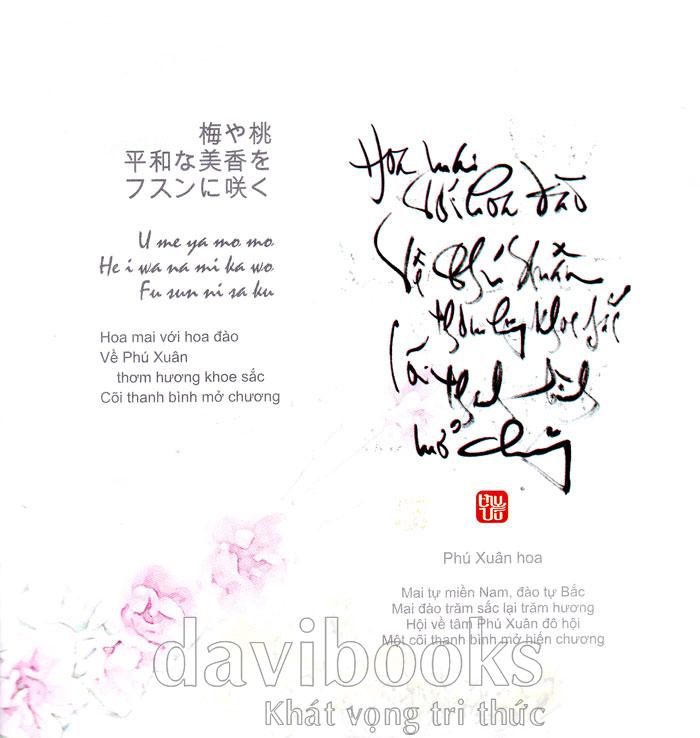 梅や桃
平和な美香を
フスンに咲く
U me ya mo mo
He i wa na mi ka wo
Fu sun ni sa ku
Hoa mai với hoa đào
Về Phú Xuân
thơm hương khoe sắc
Cõi thanh bình mở chương
Hoa mai
với hoa đào
Về Phú Xuân
thơm hương khoe sắc
Cõi thanh bình
mở chương
Phú Xuân hoa
Mai tự miền Nam, đào tự Bắc
Mai đào trăm sắc lại trăm hương
Hội về tâm Phú Xuân đô hội
Một cõi thanh bình mở hiến chương
davibooks
Khát vọng tri thức